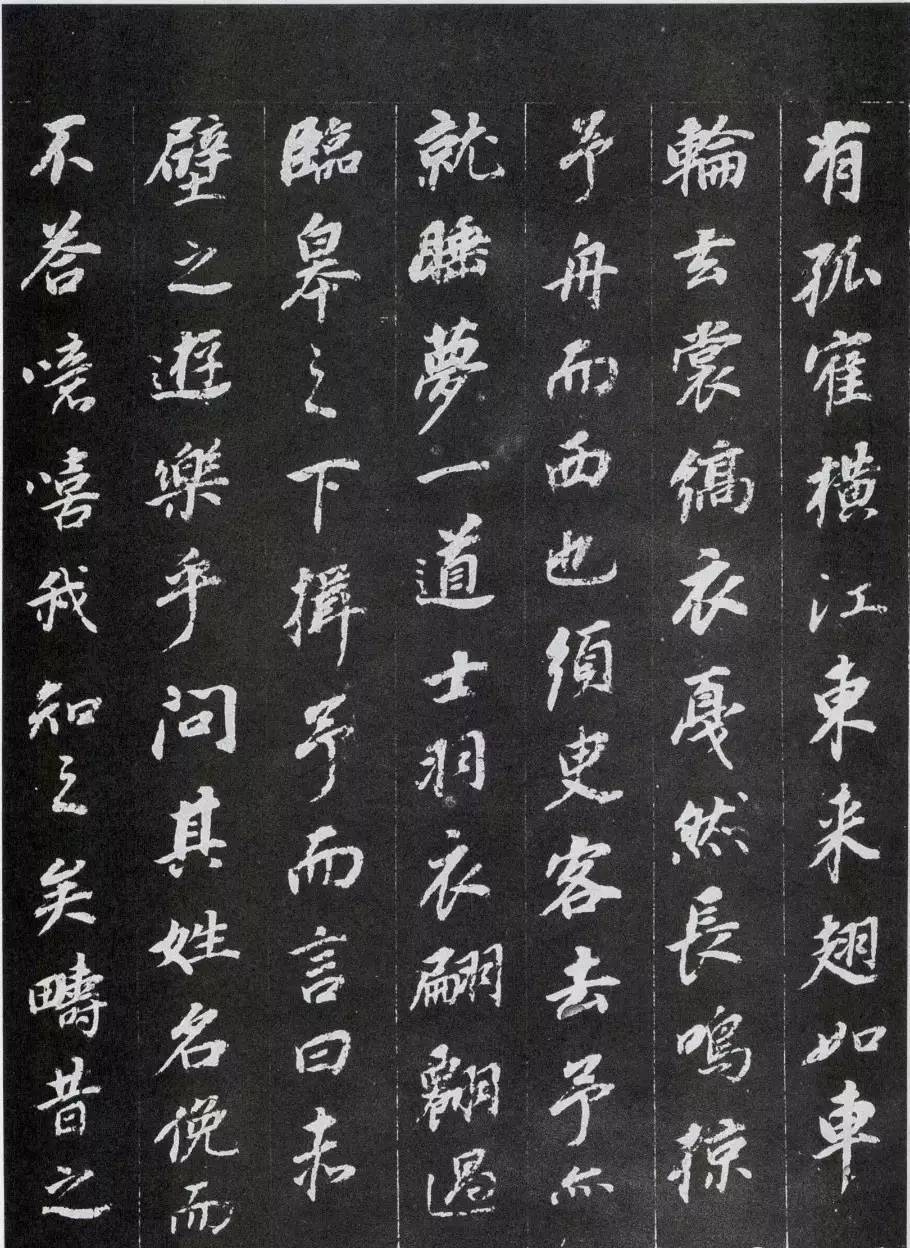 有孤寉橫江東来翅如車
輪玄裳縞衣戛然長鳴掠
予舟而西也須臾客去予亦
就睡夢一道士羽衣翩翩過
臨皋之下揖予而言曰赤
壁之遊樂乎問其姓名俛而
不答噫嘻我知之矣疇昔之